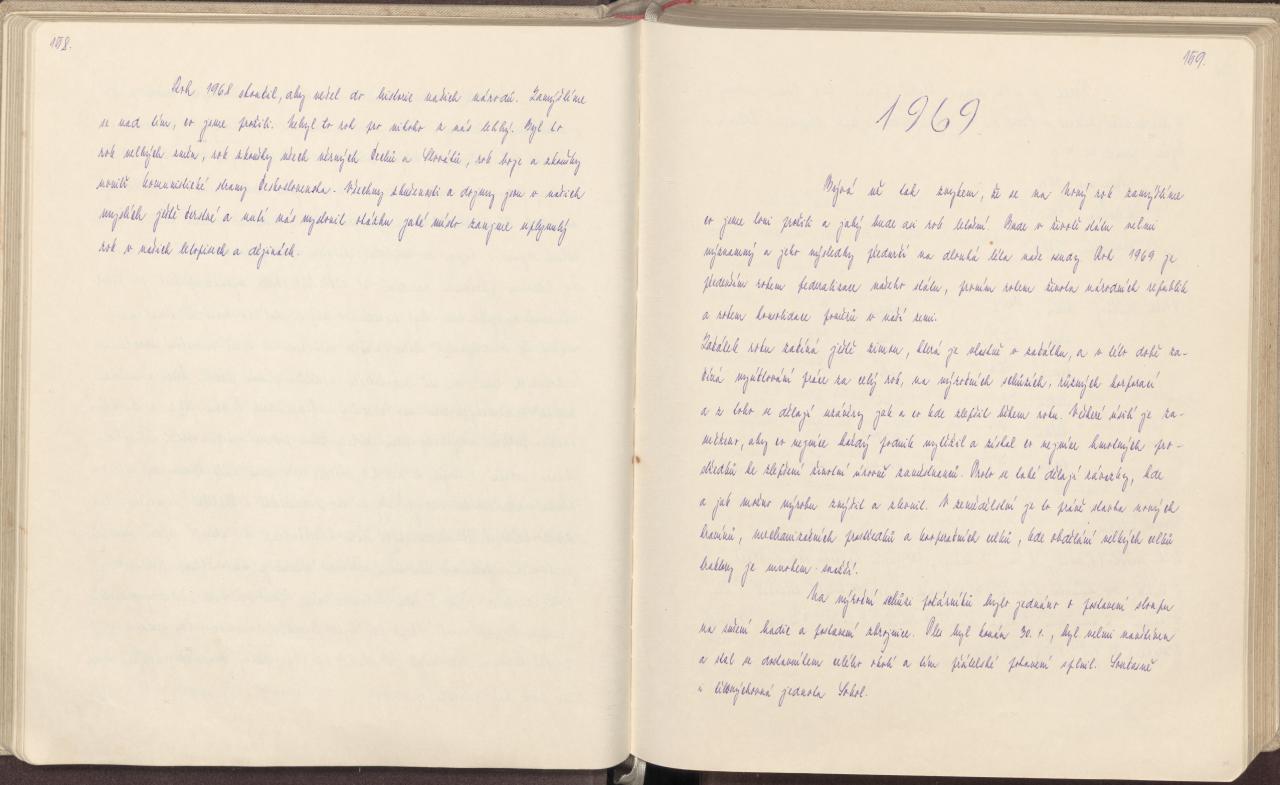 158.
Rok 1968 skončil, aby vešel do historie našich národů. Zamýšlíme
se nad tím, co jsme prožili. Nebyl to rok pro nikoho z nás lehký. Byl to
rok velkých změn, rok zkoušky všech věrných Čechů a Slováků, rok boje a zkoušky
uvnitř Komunistické strany Československa. Všechny zkušenosti a dojmy jsou v našich
myslích ještě čerstvé a nutí nás vyslovit otázku jaké místo zaujme uplynulý
rok v našich letopisech a dějinách.
159.
1969
Bývá už tak zvykem, že se na Nový rok zamýšlíme
co jsme loni prožili a jaký bude asi rok letošní. Bude v životě státu velmi
významný a jeho výsledky předurčí na dlouhá léta naše osudy. Rok 1969 je
především rokem federalizace našeho státu, prvním rokem života národních republik
a rokem konsolidace poměrů v naší zemi.
Začátek roku začíná ještě zimou, která je vlastně v začátku, a v této době za-
číná vyúčtování práce za celý rok, na výročních schůzích, různých korporací
a z toho se dělají uzávěry jak a co kde zlepšit během roku. Veškeré úsilí je za-
měřeno, aby co nejvíce každý podnik vytěžil a získal co nejvíce hmotných pro-
středků ke zlepšení životní úrovně zaměstnanců. Proto se také dělají závazky, kde
a jak možno výrobu zvýšit a zlevnit. V zemědělství je to právě stavba nových
kravínů, mechanizačních prostředků a kooperačních celků, kde obdělání velkých celků
traktory je mnohem snažší.
Na výroční schůzi požárníků bylo jednáno o postavení sloupu
na sušení hadic a postavení zbrojnice. Ples byl konán 30. 1., byl velmi navštíven
a stal se dostavníkem celého okolí a tím přátelské pobavení splnil. Současně
i tělovýchovná jednota Sokol.